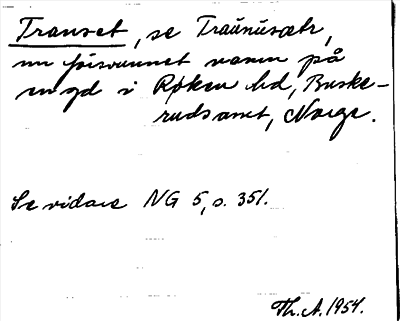 Transet, se Traúnúsætr,
nu försvunnet namn på
en gd i Røken hd, Buske-
rudsamt, Norge.
Se vidare NG 5, s. 351.
Th. A. 1954.